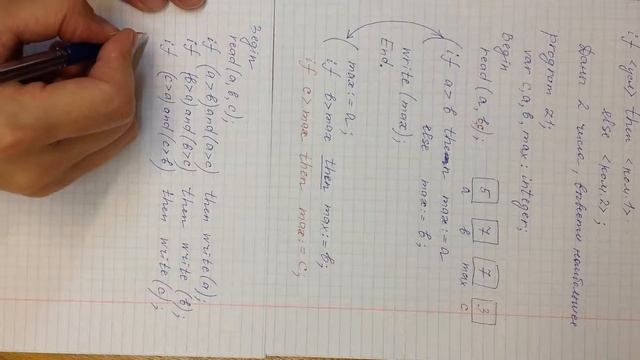 if <усл> then <ком.1>
else <ком.2>;
Дана 2 числа, вывести наибольшее
program z;
var c,a,b,max:integer;
Begin
read(a,bc);
if a>b then max:=a
else max:=b;
write(max);
End.
5 7 7 3
a b max c
max:=a;
if b>max then max:=b;
if c>max then max:=c;
Begin
read(a,b,c);
if (a>b)and(a>c) then write(a);
if (b>a)and(b>c) then write(b);
if (c>a)and(c>b) then write(c);